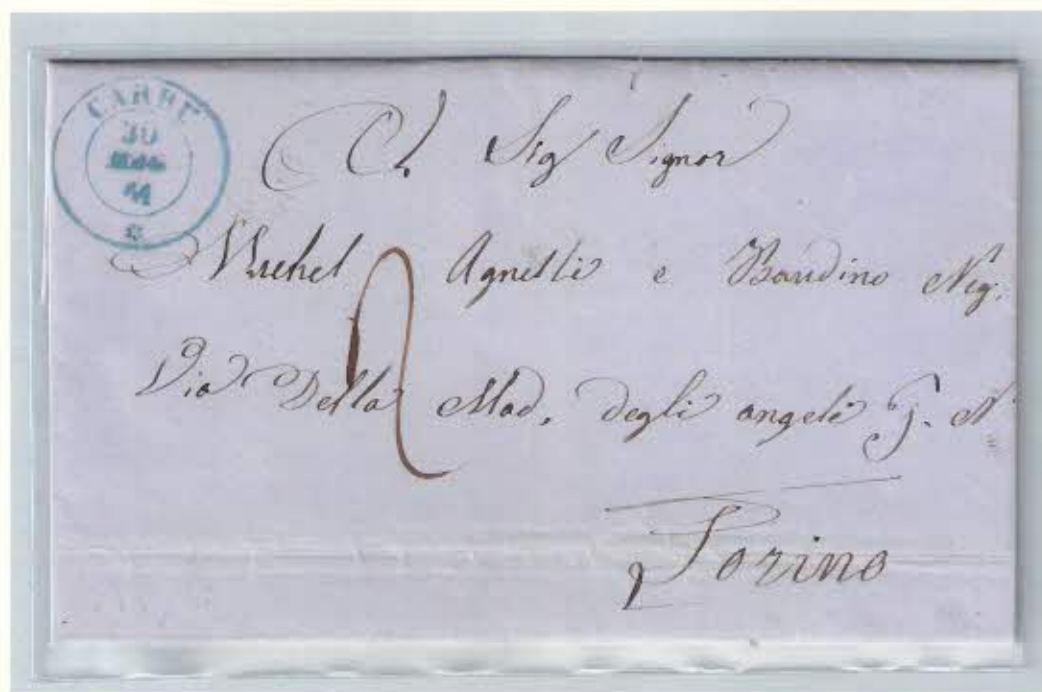 CARRU
30
Al. Sig Signor
Michel Agnelli e Baudino Neg.
Via Della Mad. degli angeli
2
Torino